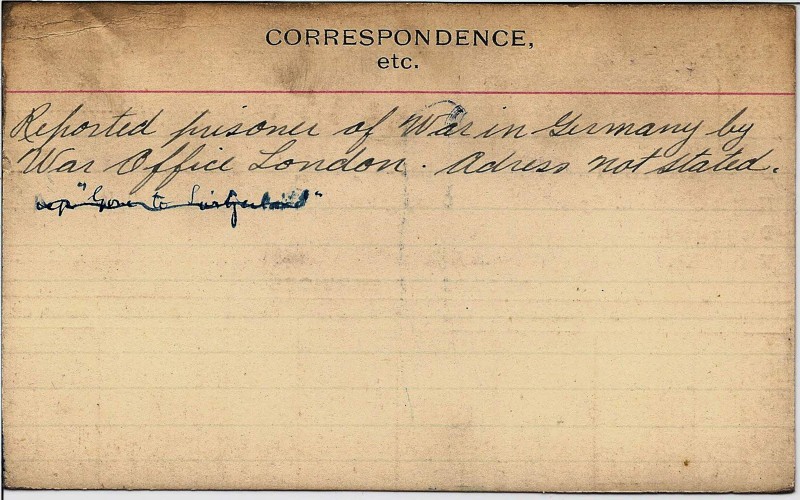 CORRESPONDENCE,
etc.
Reported prisoner of War in Germany by
War Office London. Adress not stated.
"Gone to Switzerland"